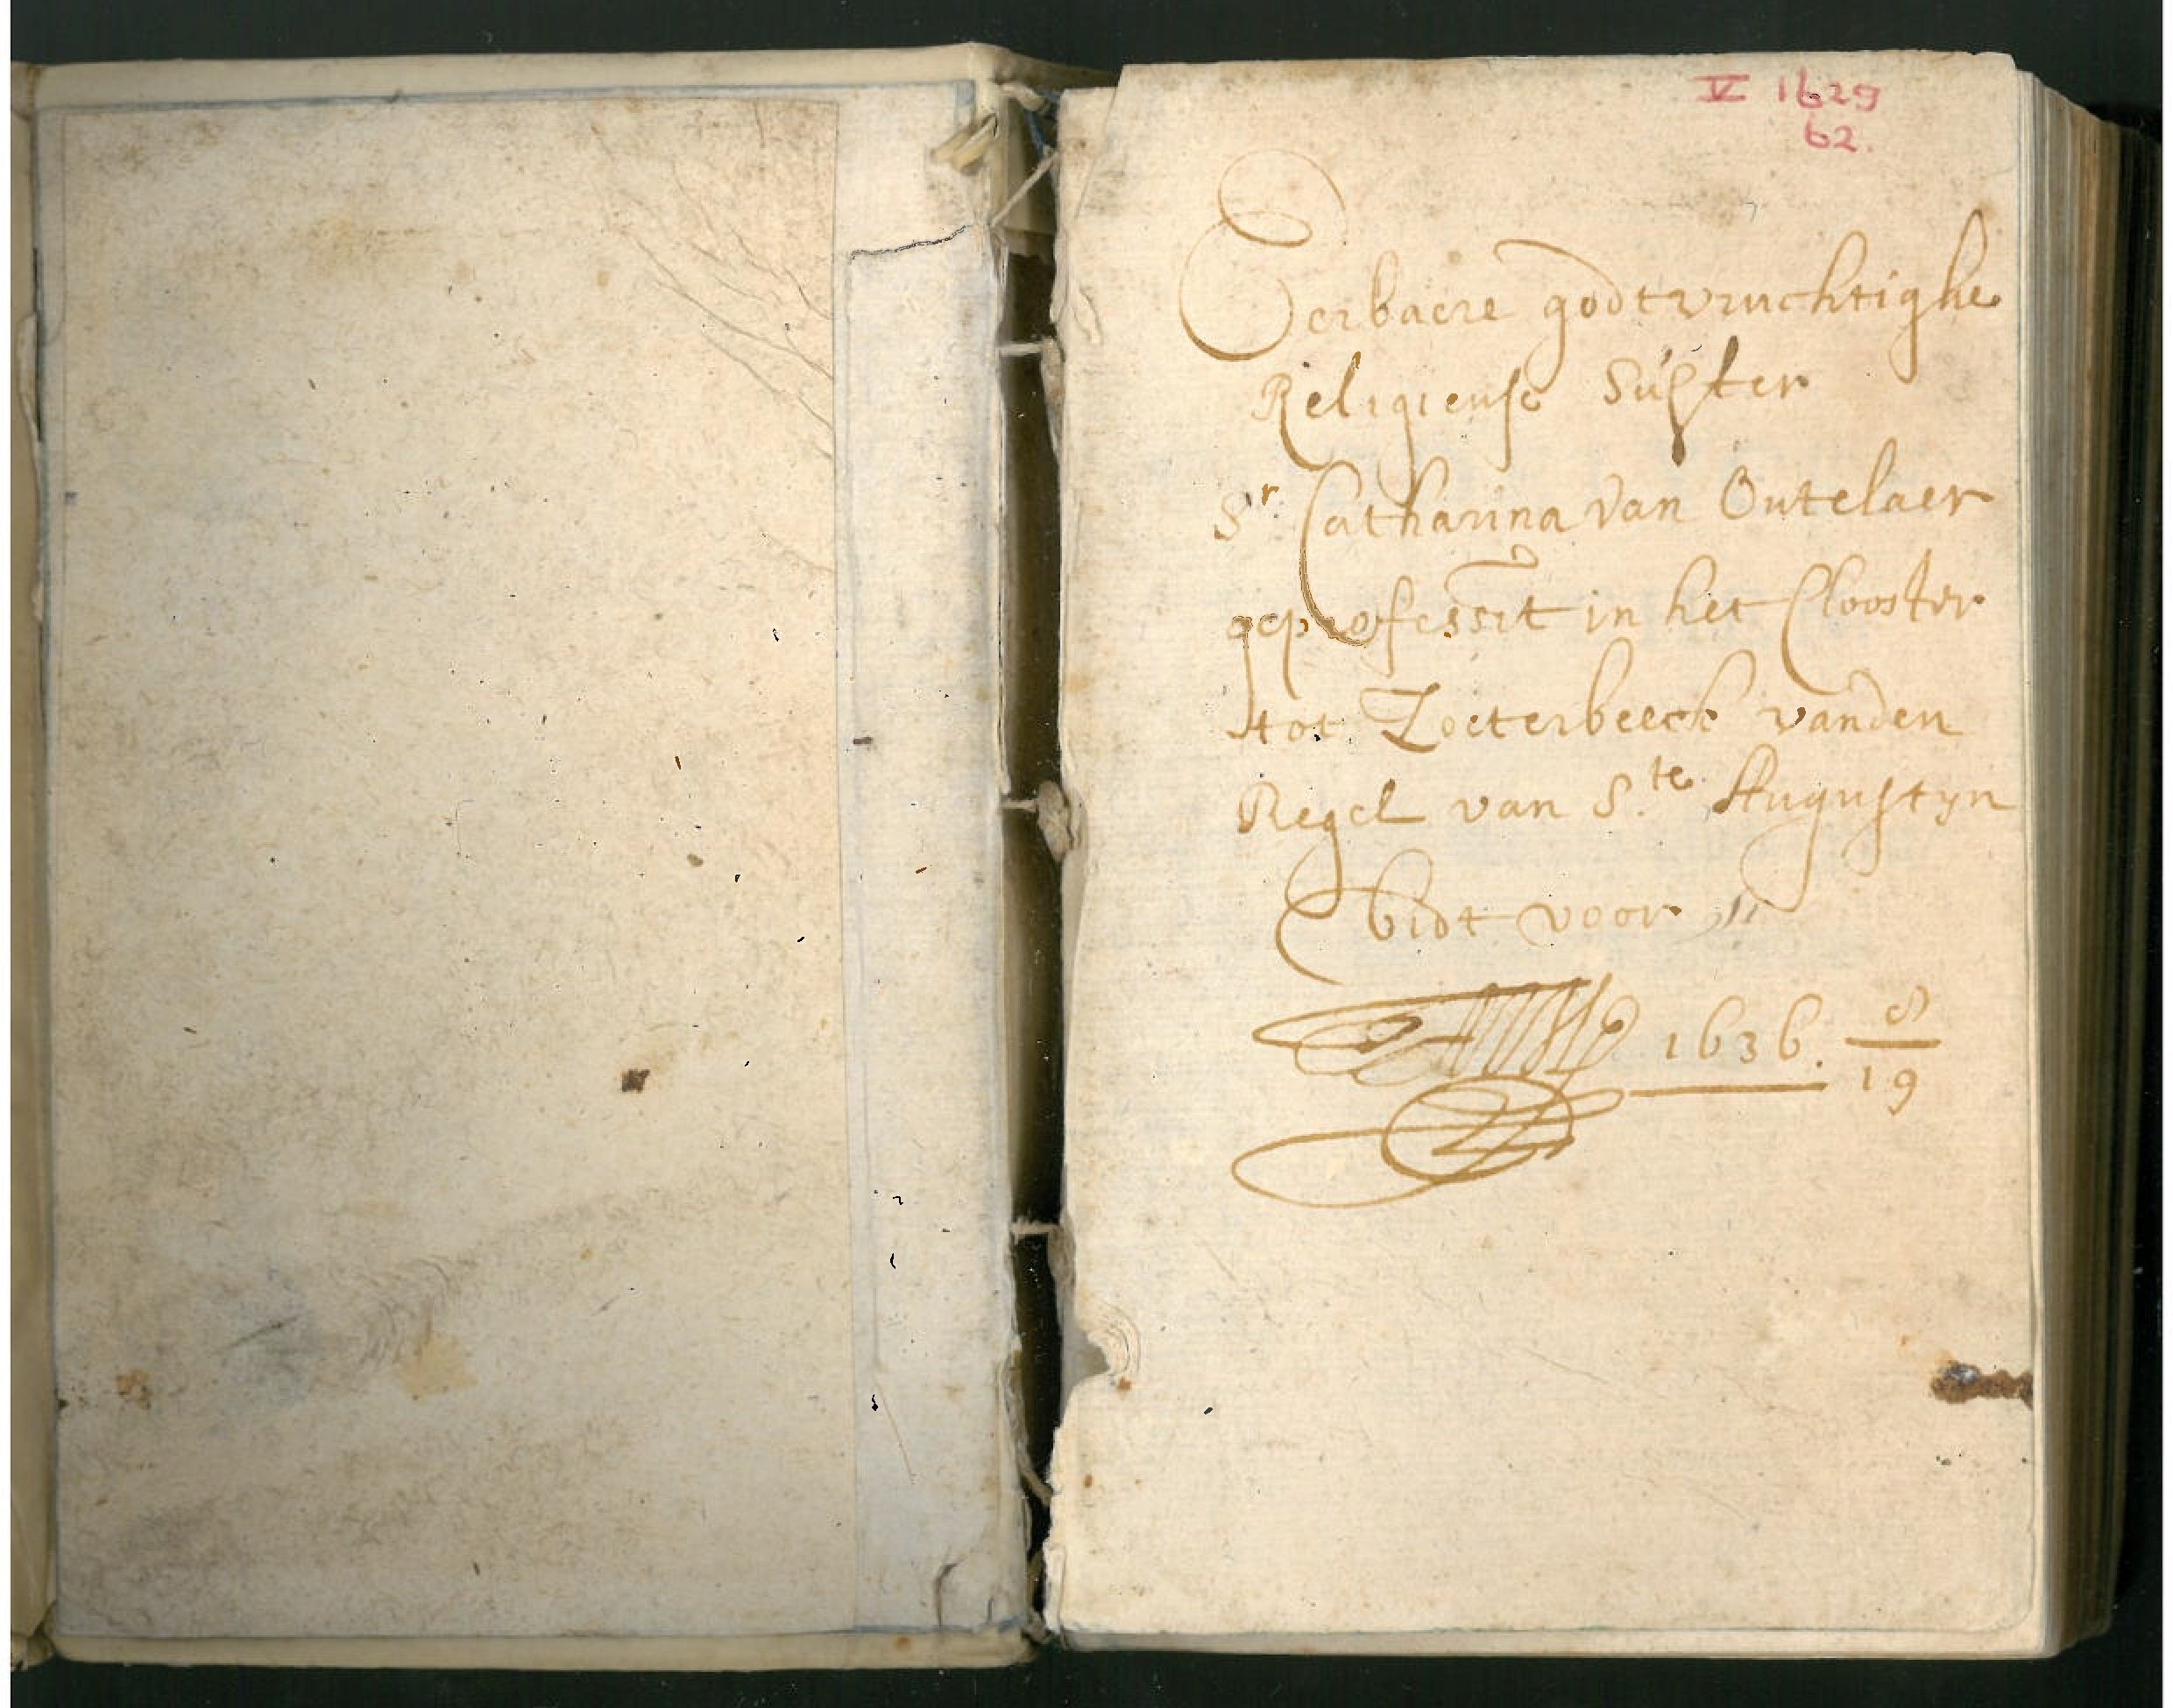 V 1629
62.
Eerbaere godtvruchtighe
Religieuse Suster
Sr Catharina van Outelaer
geprofessit in het Clooster
tot Zoeterbeeck vanden
Regel van S.te Augustyn
bidt voor
1636. 8/19